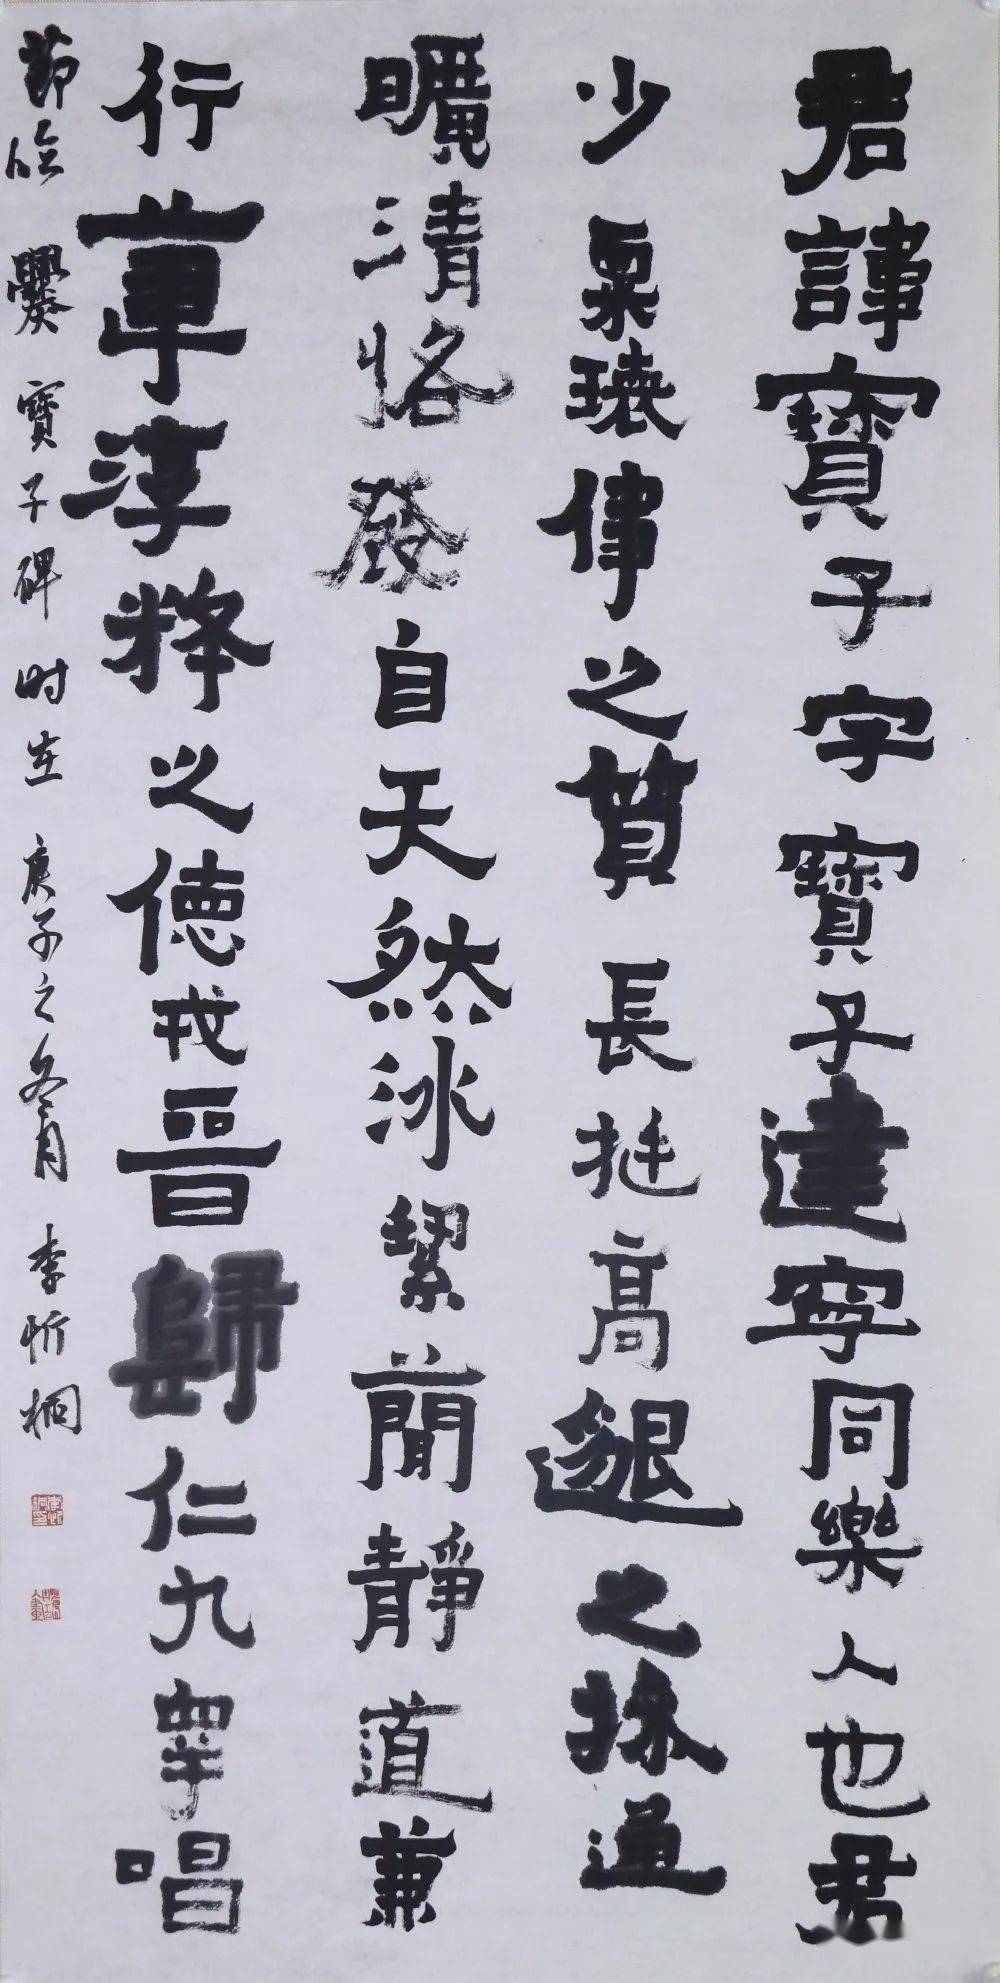 君諱寶子字寶子建寧同樂人也君
少稟瓌偉之質長挺高邈之操通
曠清恪發自天然冰絜簡靜道兼
行葦淳粹之德戎晉歸仁九皋唱
節臨爨寶子碑时在庚子之冬月李忻桐